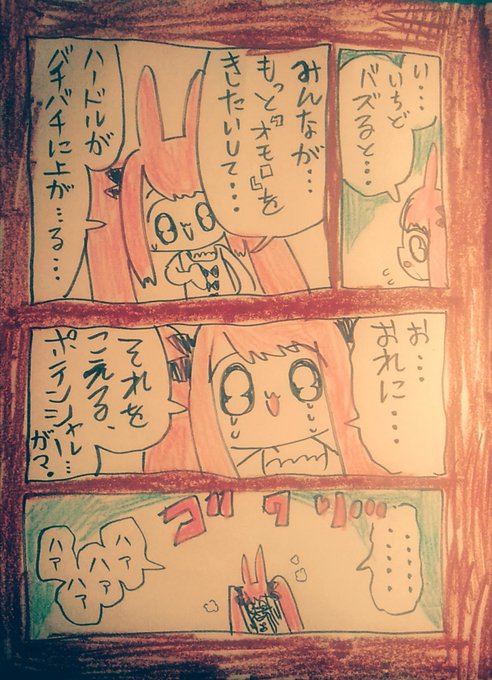 い・・・
いちど
バズると・・・
みんなが・・・
もっと『オモロ』を
きたいして・・・
ハードルが
バチバチに上が…る…
お・・・
おれに・・・
それを
こえる、
ポテンシャル…
が？
・・・・・・
ゴクリ…
ハァ
ハァ
ハァ
ハァ